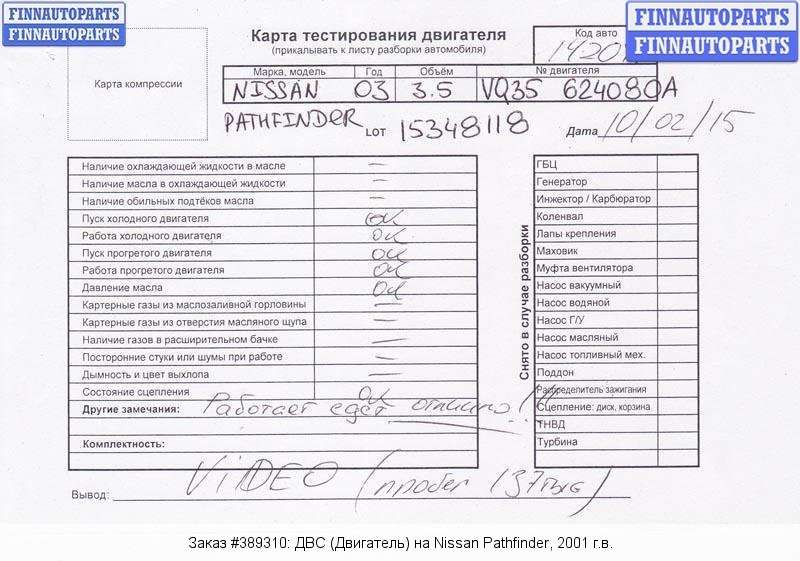 FINNAUTOPARTS
FINNAUTOPARTS
FINNAUTOPARTS
FINNAUTOPARTS
Карта тестирования двигателя
(прикалывать к листу разборки автомобиля)
Код авто
Карта компрессии
Марка, модель Год Объём № двигателя
NISSAN 03 3.5 VQ35 624080A
PATHFINDER LOT 15348118 Дата 10/02/15
Наличие охлаждающей жидкости в масле —
Наличие масла в охлаждающей жидкости —
Наличие обильных подтёков масла —
Пуск холодного двигателя ок
Работа холодного двигателя ок
Пуск прогретого двигателя ок
Работа прогретого двигателя ок
Давление масла ок
Картерные газы из маслозаливной горловины —
Картерные газы из отверстия масляного щупа —
Наличие газов в расширительном бачке —
Посторонние стуки или шумы при работе —
Дымность и цвет выхлопа —
Состояние сцепления ок
Другие замечания: Работает едет отлично!!!
Комплектность:
Снято в случае разборки
ГБЦ
Генератор
Инжектор / Карбюратор
Коленвал
Лапы крепления
Маховик
Муфта вентилятора
Насос вакуумный
Насос водяной
Насос Г/У
Насос масляный
Насос топливный мех.
Поддон
Распределитель зажигания
Сцепление: диск, корзина
ТНВД
Турбина
Вывод: VIDEO (пробег 137тыс)
Заказ #389310: ДВС (Двигатель) на Nissan Pathfinder, 2001 г.в.